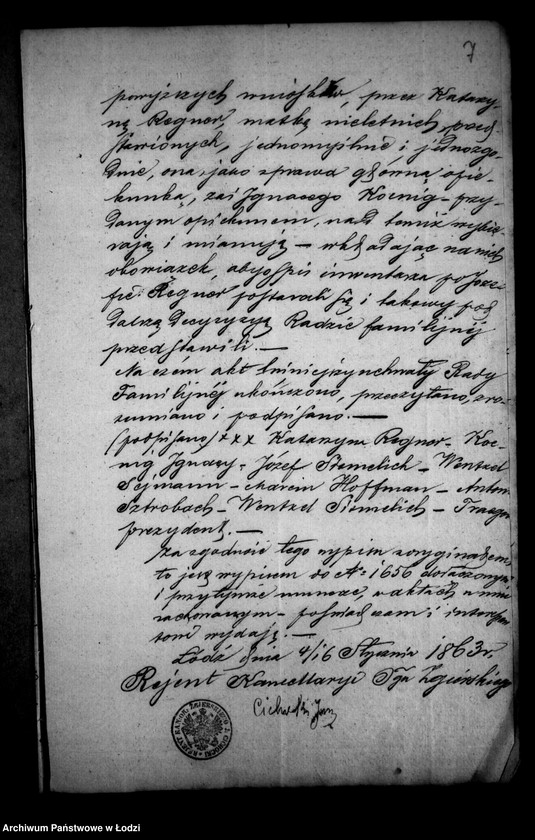 7
powyższych wniosków, przez Katarzy-
nę Regner matkę nieletnich, przed
stawionych, jednomyślnie i jednozgo-
dnie, ona jako sprawa główną opie-
kunka, zaś Ignacego Koenig - przy-
danym opiekunem, nad temiż wybie-
rają i mianują — wkładając na nich
obowiązek, aby spis inwentarza po Joze-
fie Regner postarali się i takowy pod
dalszą decyzyją Radzie familijnéj
przedstawili. —
Na czém akt niniejszy uchwały Rady
Familijnéj ukończono, przeczytano, zro-
zumiano i podpisano. —
(podpisano) xxx Katarzyna Regner - Koe-
nig Ignacy - Józef Siemelich - Wentzel
Sejmann - Marcin Hoffman - Anton
Sztrobach - Wentzel Siemelich - Traeger
prezydent. —
Za zgodność tego wypisu z oryginałem
to jest wypisem do No 1656 dołączonym
i przy tymże numerze, w aktach u mnie
zachowanym - poświadczam i interessen
tom wydaję. —
Łódź dnia 4/16 Stycznia 1863 r.
Rejent Kancellaryi Zgierskiego
Archiwum Państwowe w Łodzi